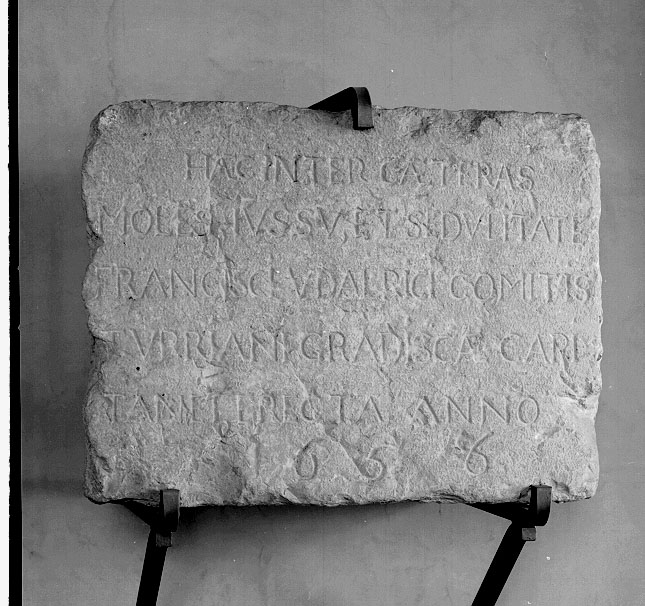 HAC INTER CÆTERAS
MOLES IVSSV, ET SEDVLITATE
FRANCISCI VDALRICI COMITIS
TVRRIANI GRADISCÆ CAPI
TANEI ERECTA ANNO
1656